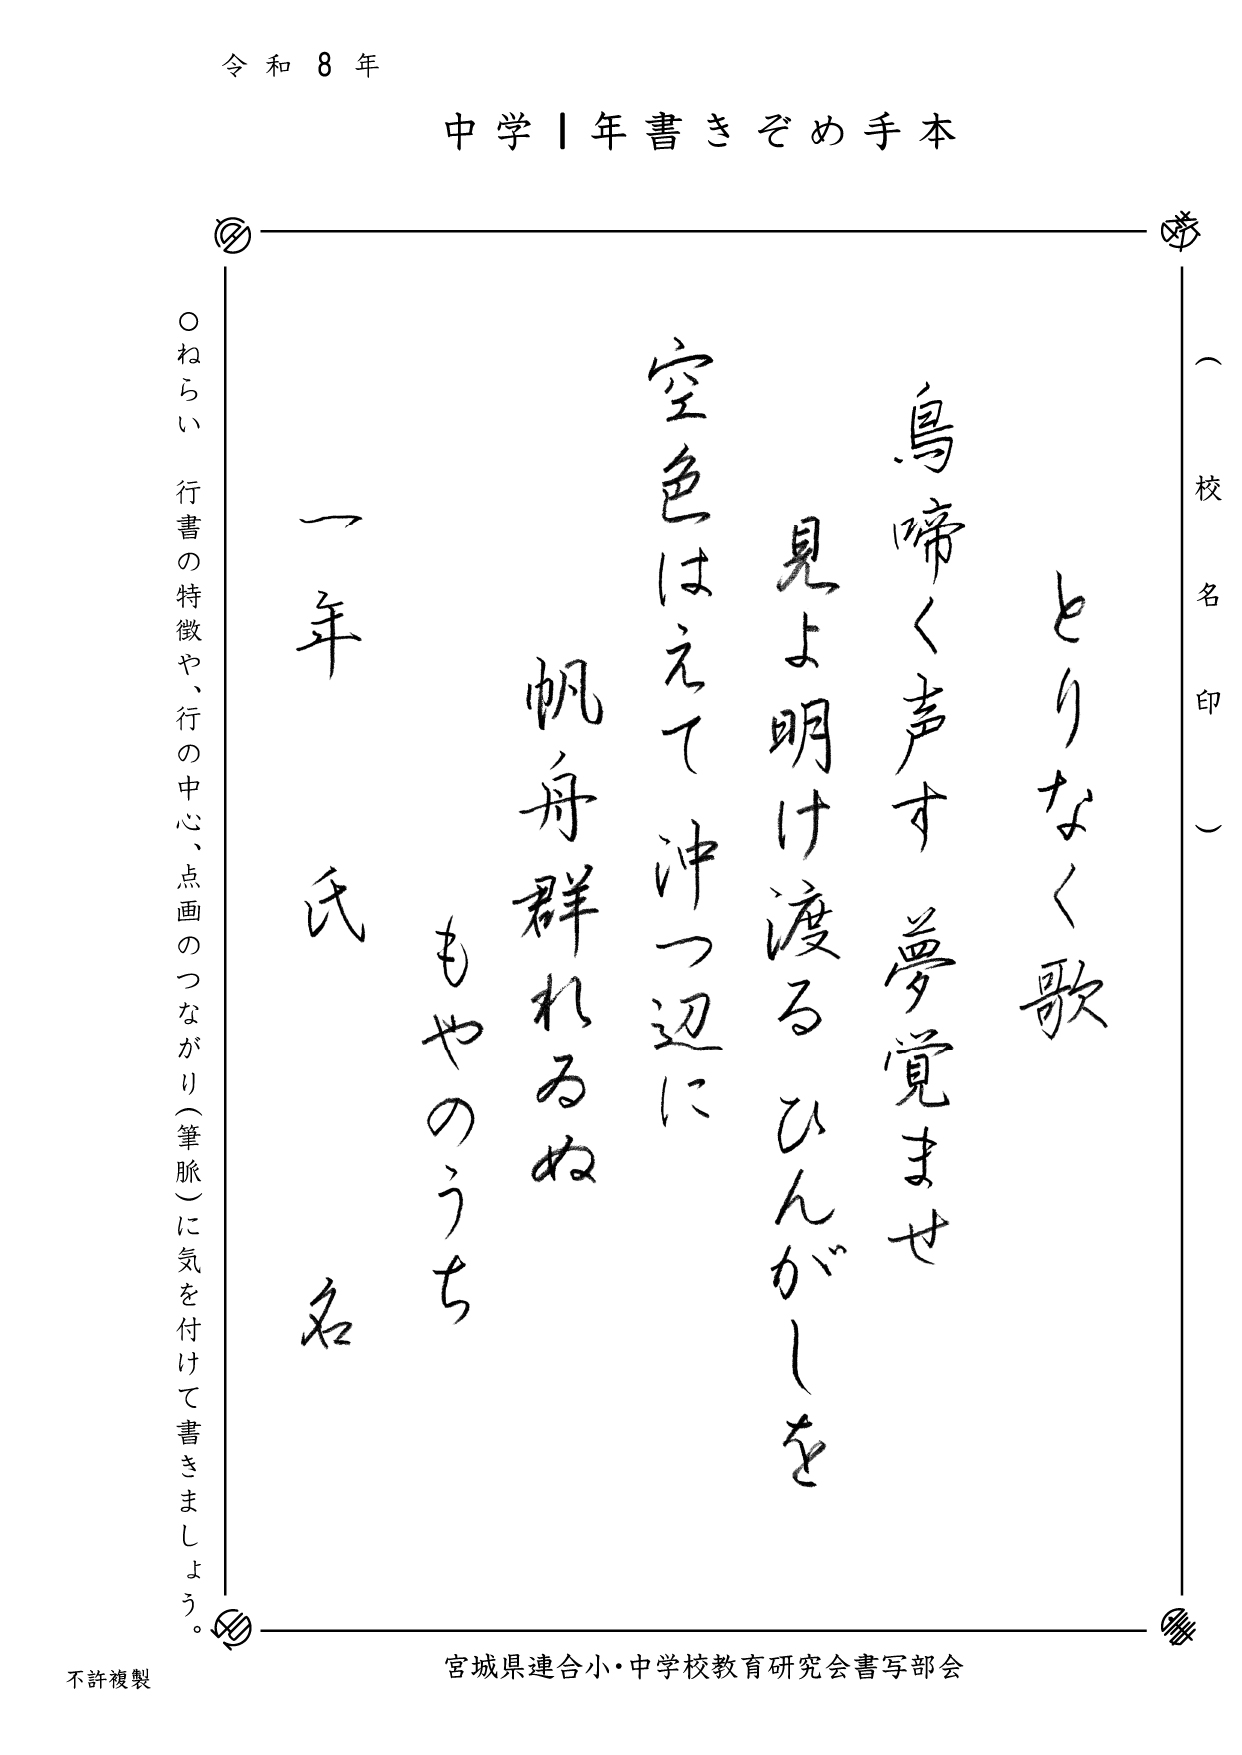 令和8年
中学1年書きぞめ手本
(校名印)
とりなく歌
鳥啼く声す 夢覚ませ
見よ明け渡る ひんがしを
空色はえて 沖つ辺に
帆舟群れゐぬ
もやのうち
一年 氏名
○ねらい 行書の特徴や、行の中心、点画のつながり(筆脈)に気を付けて書きましょう。
宮城県連合小・中学校教育研究会書写部会
不許複製